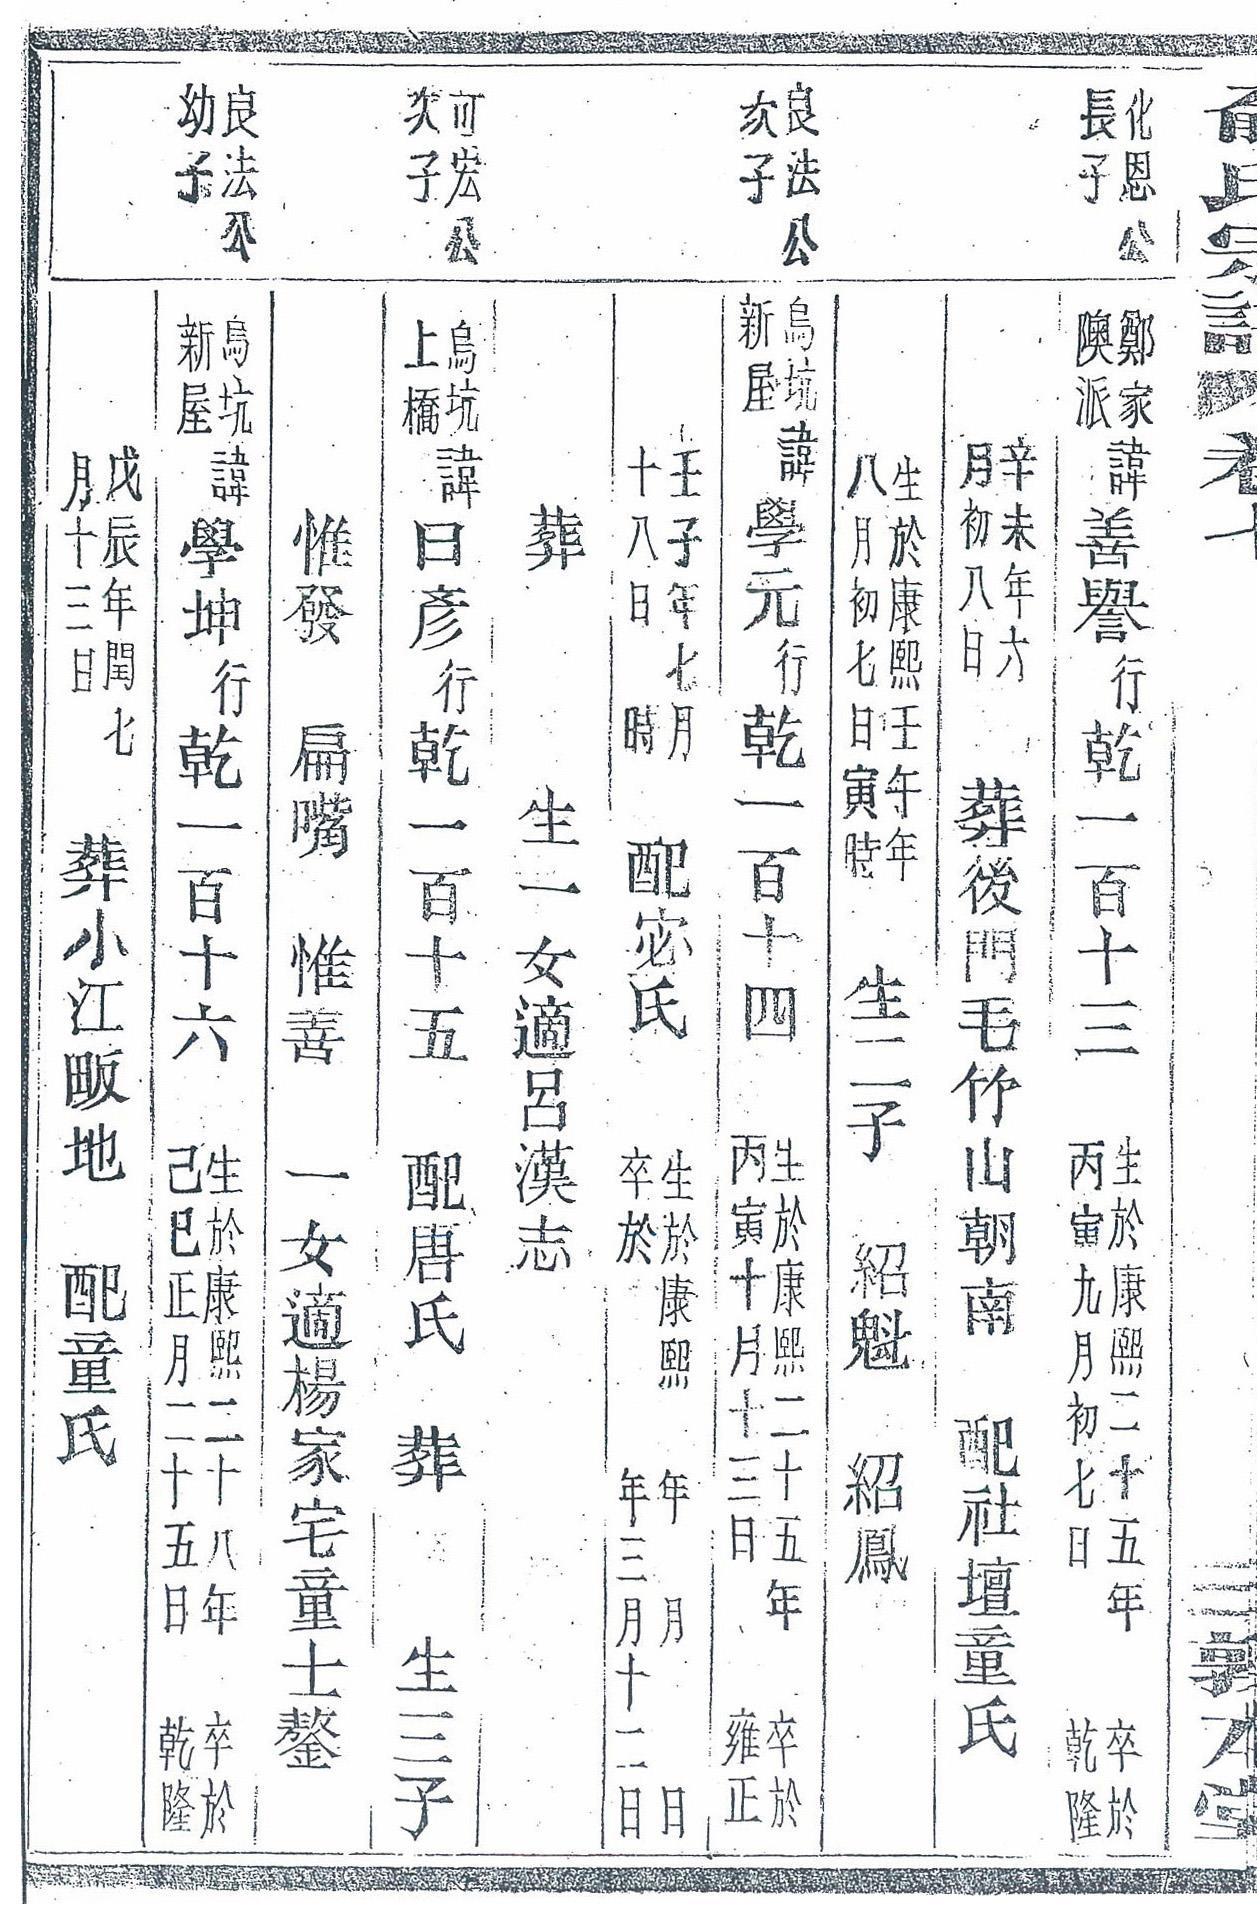 俞氏宗譜 卷七 三 敦本堂
化恩公
長子
鄭家
隩派
諱善譽行乾一百十三
生於康熙二十五年
丙寅九月初七日
卒於
乾隆
辛未年六
月初八日
葬後門毛竹山朝南 配社壇童氏
生於康熙壬午年
八月初七日寅時
生二子 紹魁 紹鳳
良法公
次子
烏坑
新屋
諱學元行乾一百十四
生於康熙二十五年
丙寅十月十三日
卒於
雍正
壬子年七月
十八日 時
配宓氏
生於康熙 年 月 日
卒於 年三月十二日
葬 生一女適呂漢志
可宏公
次子
烏坑
上橋
諱曰彥行乾一百十五 配唐氏 葬 生三子
惟發 扁嘴 惟善 一女適楊家宅童士鏊
良法公
幼子
烏坑
新屋
諱學坤行乾一百十六
生於康熙二十八年
己巳正月二十五日
卒於
乾隆
戊辰年閏七
月十三日
葬小江畈地 配童氏